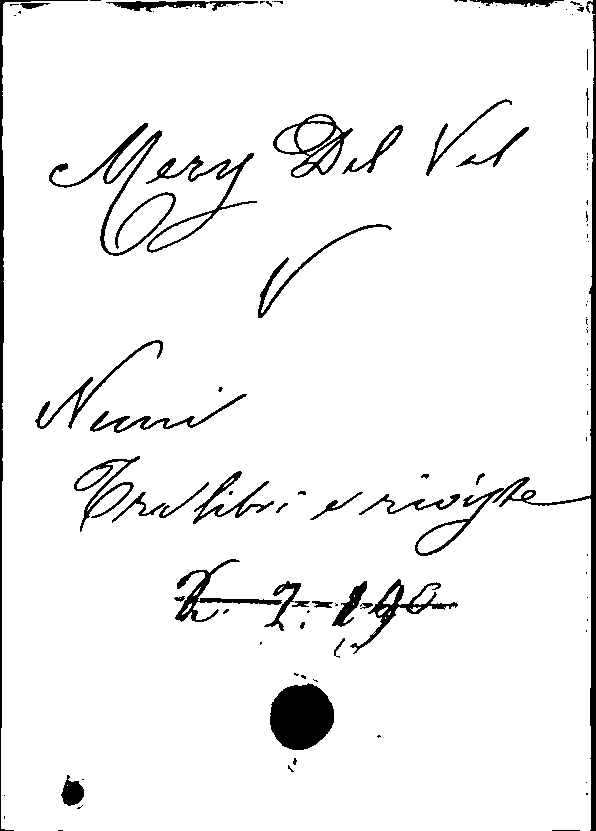 Mery Del Val
V
Nunni
Tra libri e riviste
2. 190